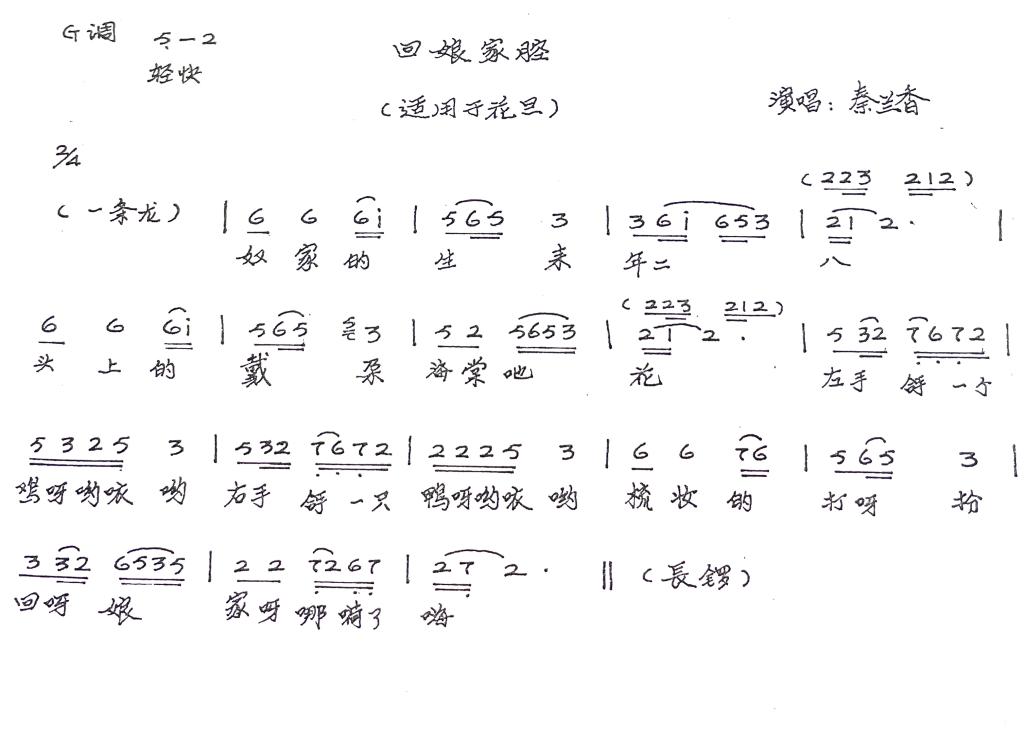 G调 5—2 回娘家腔
轻快
(适用于花旦) 演唱：秦兰香
2/4
(223 212)
(一条龙) | 6 6 6i | 565 3 | 36i 653 | 2i 2· |
奴家的 生 来 年二 八
(223 212)
6 6 6i | 565 3 | 52 5653 | 2i 2· | 532 7672 |
头上的 戴 朵 海棠吔 花 左手 一个
5325 3 | 532 7672 | 2225 3 | 6 6 76 | 565 3 |
鸡呀哟咴 哟 右手 一只 鸭呀哟咴 哟 梳妆的 打呀 扮
332 6535 | 2 2 7267 | 27 2· ‖ (長锣)
回呀 娘 家呀哪嗬了 嗨